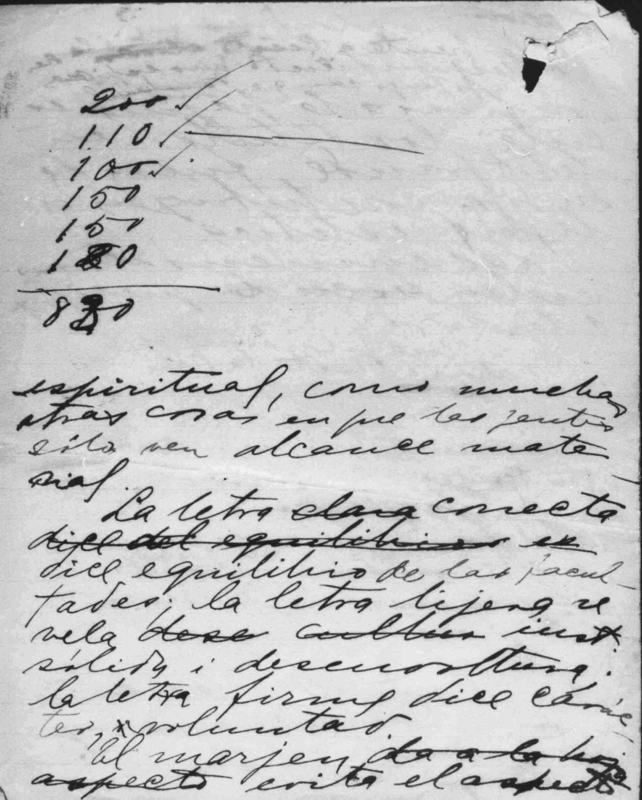 200
110
100
150
150
120
830
espiritual, como muchas
otras cosas en que las jentes
sólo ven alcance mate
rial.
La letra clara correcta
dice del equilibrio es
dice equilibrio de las facul-
tades; la letra lijera re
vela dese cultura inst.
sólida i desenvoltura;
la letra firme dice carác
ter, voluntad.
El marjen da a la hoja
aspecto evita el aspecto